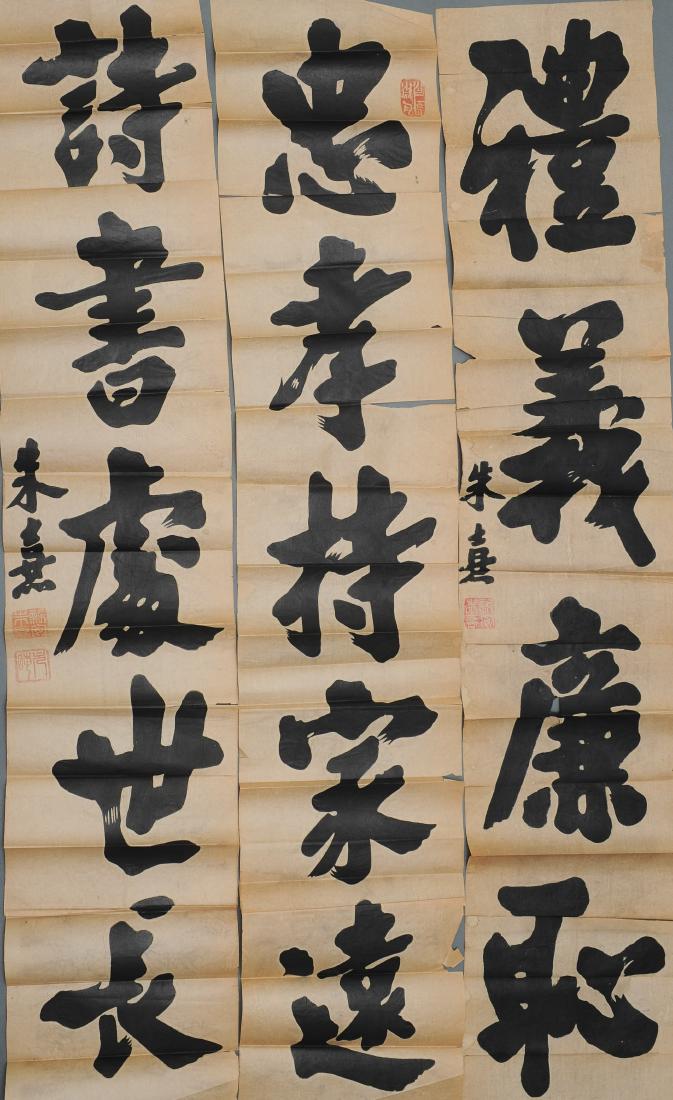 禮義廉恥
朱熹
忠孝持家遠
詩書處世長
朱熹